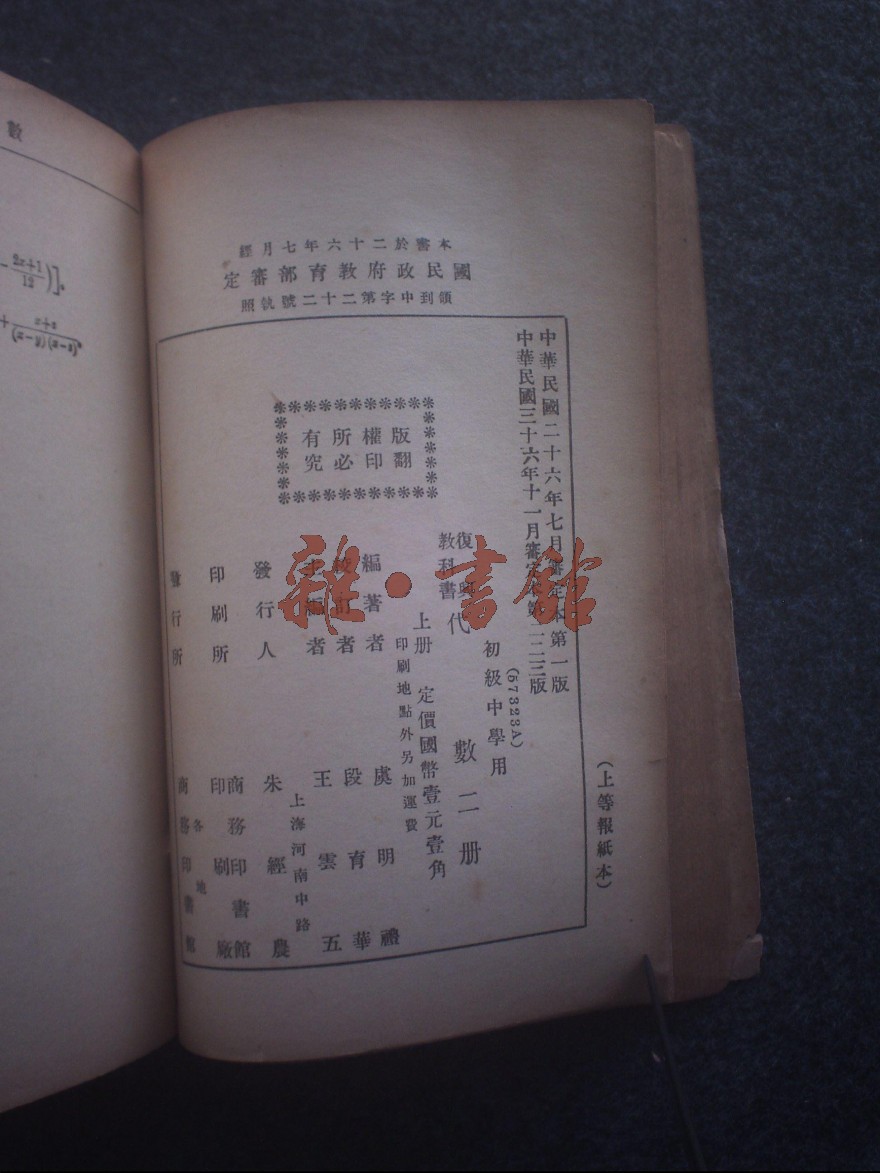 數
2x+1
12
x+z
(x-y)(x-z)
本書於二十六年七月經
國民政府教育部審定
領到中字第二十二號執照
中華民國二十六年七月審定本第一版
中華民國三十六年十一月審定本第一二三版
(57323A)
初級中學用
復興教科書 代數 二冊
上冊 定價國幣壹元壹角
印刷地點外另加運費
版權所有
翻印必究
編著者 虞明禮
校訂者 段育華
主編者 王雲五
上海河南中路
發行人 朱經農
印刷所 商務印書館印刷廠
發行所 各地 商務印書館
(上等報紙本)
雜·書館